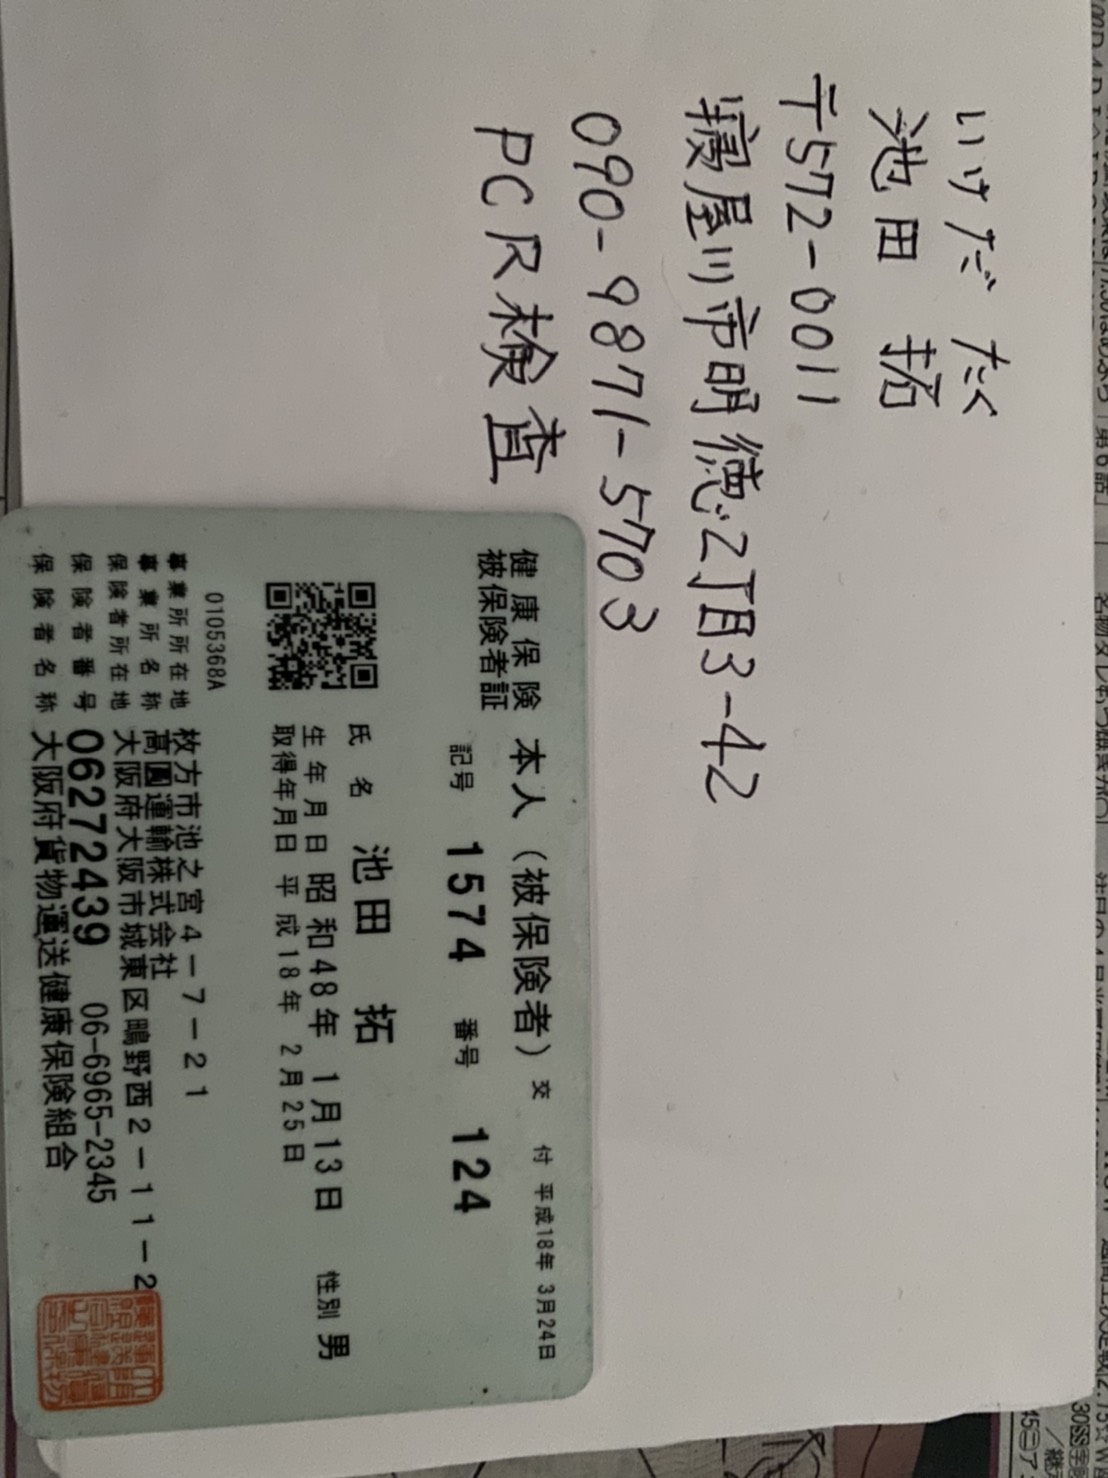 いけだ たく
池田 拓
〒572-0011
寝屋川市明徳2丁目3-42
090-9871-5703
PCR検査
健康保険 本人(被保険者) 交付 平成18年 3月24日
被保険者証
記号 1574 番号 124
氏名 池田 拓
生年月日 昭和48年 1月13日 性別 男
取得年月日 平成18年 2月25日
0105368A
事業所所在地 枚方市池之宮4-7-21
事業所名称 高圓運輸株式会社
保険者所在地 大阪府大阪市城東区鴫野西2-11-2
保険者番号 06272439 06-6965-2345
保険者名称 大阪府貨物運送健康保険組合